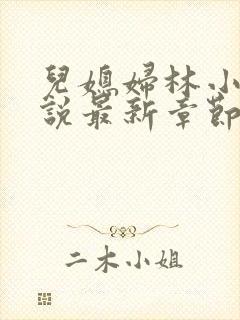 兒媳婦林小
說最新章節
二木小姐